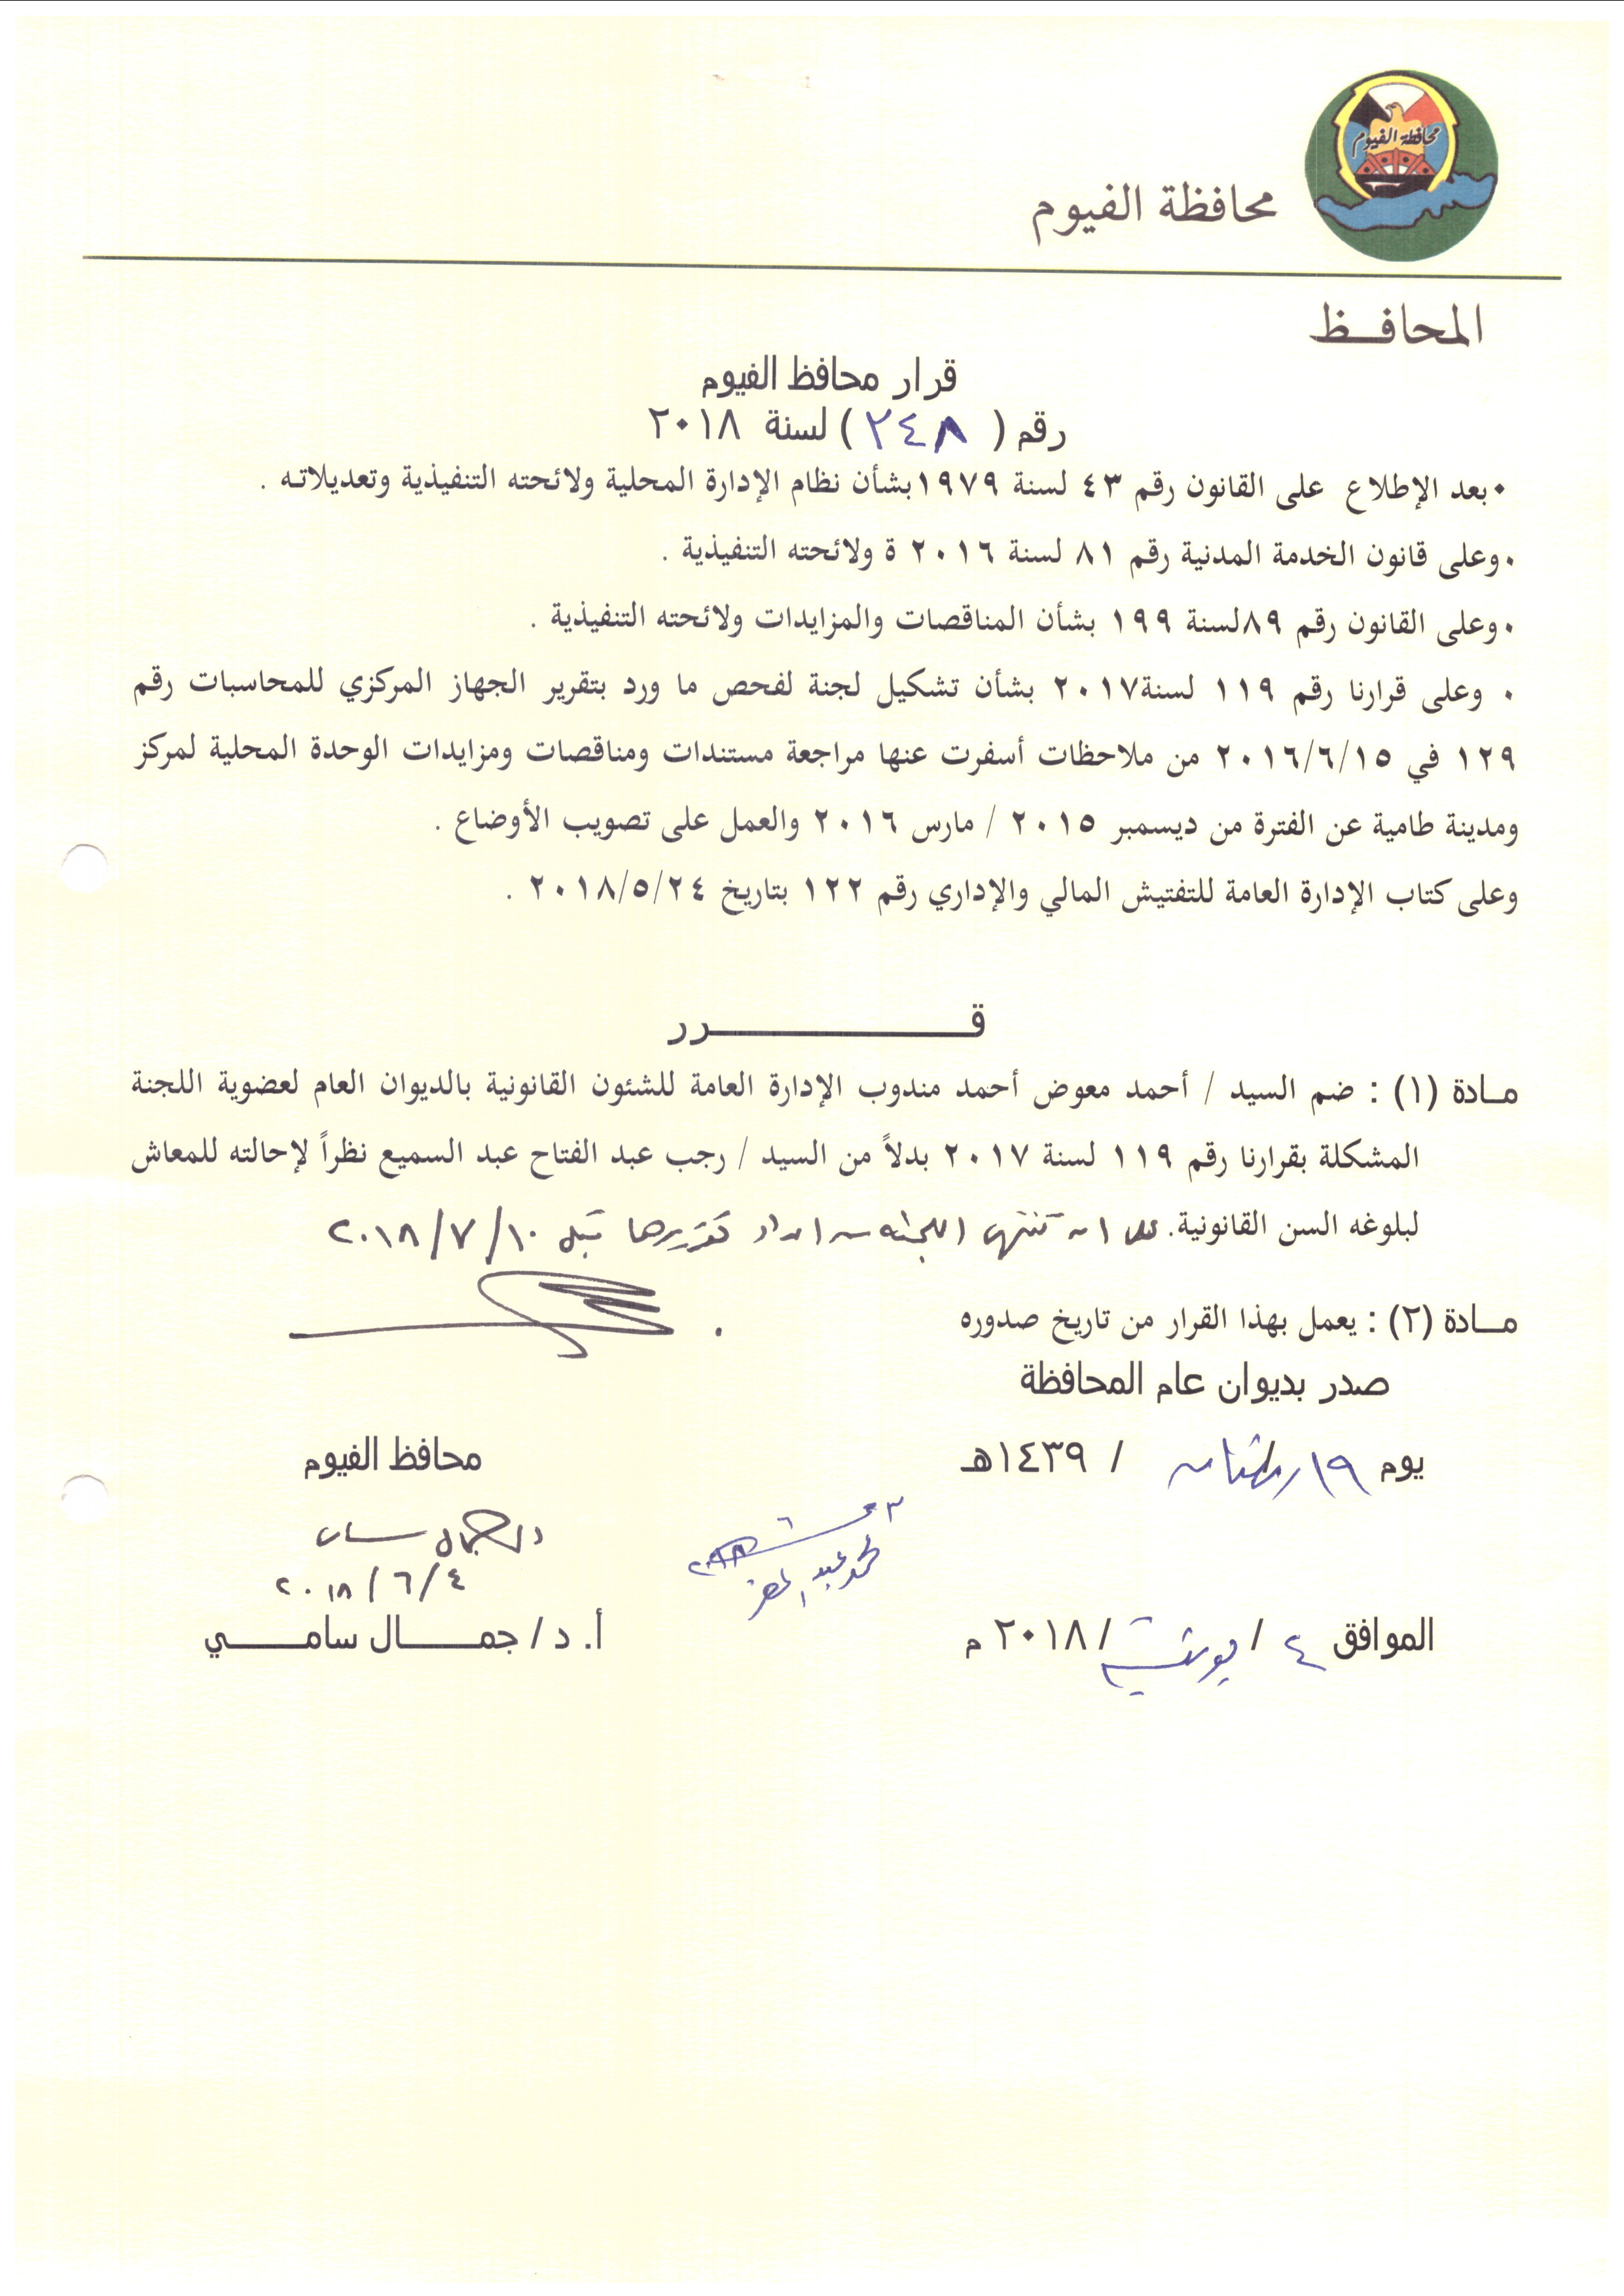 محافظة الفيوم
محافظة الفيوم
المحافــظ
قرار محافظ الفيوم
رقم ( ٢٤٨ ) لسنة ٢٠١٨
• بعد الإطلاع على القانون رقم ٤٣ لسنة ١٩٧٩ بشأن نظام الإدارة المحلية ولائحته التنفيذية وتعديلاته .
• وعلى قانون الخدمة المدنية رقم ٨١ لسنة ٢٠١٦ ة ولائحته التنفيذية .
• وعلى القانون رقم ٨٩لسنة ١٩٩ بشأن المناقصات والمزايدات ولائحته التنفيذية .
• وعلى قرارنا رقم ١١٩ لسنة٢٠١٧ بشأن تشكيل لجنة لفحص ما ورد بتقرير الجهاز المركزي للمحاسبات رقم
١٢٩ في ٢٠١٦/٦/١٥ من ملاحظات أسفرت عنها مراجعة مستندات ومناقصات ومزايدات الوحدة المحلية لمركز
ومدينة طامية عن الفترة من ديسمبر ٢٠١٥ / مارس ٢٠١٦ والعمل على تصويب الأوضاع .
وعلى كتاب الإدارة العامة للتفتيش المالي والإداري رقم ١٢٢ بتاريخ ٢٠١٨/٥/٢٤ .
قــــــــــرر
مــادة (١) : ضم السيد / أحمد معوض أحمد مندوب الإدارة العامة للشئون القانونية بالديوان العام لعضوية اللجنة
المشكلة بقرارنا رقم ١١٩ لسنة ٢٠١٧ بدلاً من السيد / رجب عبد الفتاح عبد السميع نظراً لإحالته للمعاش
لبلوغه السن القانونية. تنتهى اللجنه من اعداد تقريرها قبل ٢٠١٨/٧/١٠
مــادة (٢) : يعمل بهذا القرار من تاريخ صدوره .
صدر بديوان عام المحافظة
يوم ١٩ رمضان / ١٤٣٩هـ
محافظ الفيوم
د. جمال سامى
٢٠١٨/٦/٤
الموافق ٤ / يونيه / ٢٠١٨ م
أ. د / جمــــال سامــــي